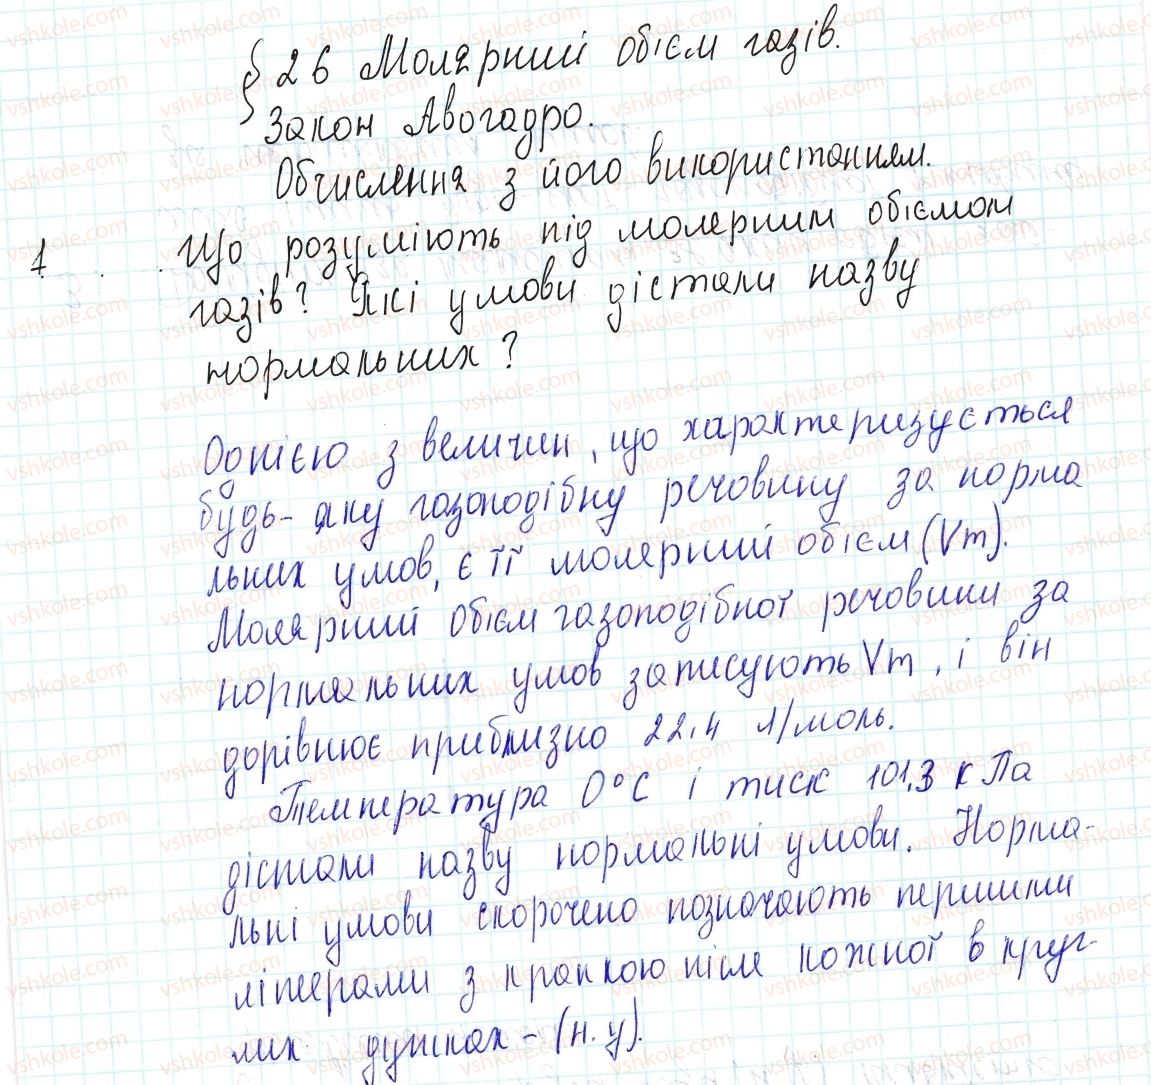 § 26 Молярний обієм газів.
Закон Авогадро.
Обчислення з його використанням.
1 Що розуміють під молярним обіємом
газів? Які умови дістали назву
нормальних?
Однією з величин, що характеризується
будь-яку газоподібну речовину за норма
льних умов, є її молярний обієм (Vm).
Молярний обієм газоподібної речовини за
нормальних умов записують Vm, і він
дорівнює приблизно 22,4 л/моль.
Температура 0°С і тиск 101,3 кПа
дістали назву нормальні умови. Норма-
льні умови скорочено позначають першими
літерами з крапкою після кожної в круг-
лих дужках - (н.у).